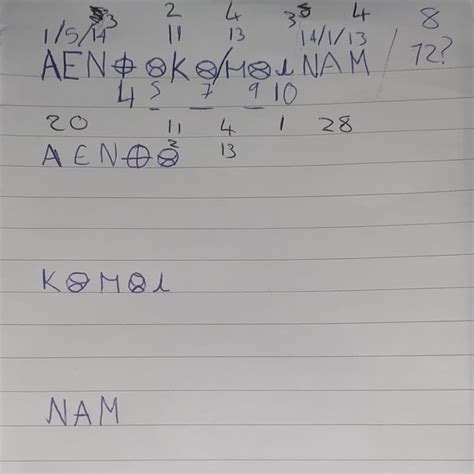 3 2 4 3 4 8
1/5/14 11 13 14/1/13 12?
AEN⌖⊗K⊗/M⊗λNAM
4 5 7 9 10
20 11 4 1 28
AEN⌖⊗ 2 13
K⊗M⊗λ
NAM